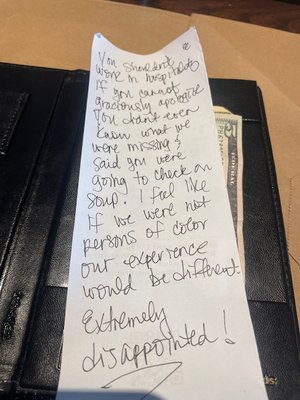 You shouldnt
work in hospitality
If you cannot
graciously apologize
You didnt even
know what we
were missing &
said you were
going to check on
soup! I feel like
If we were not
persons of color
our experience
would be different
Extremely
disappointed!
5